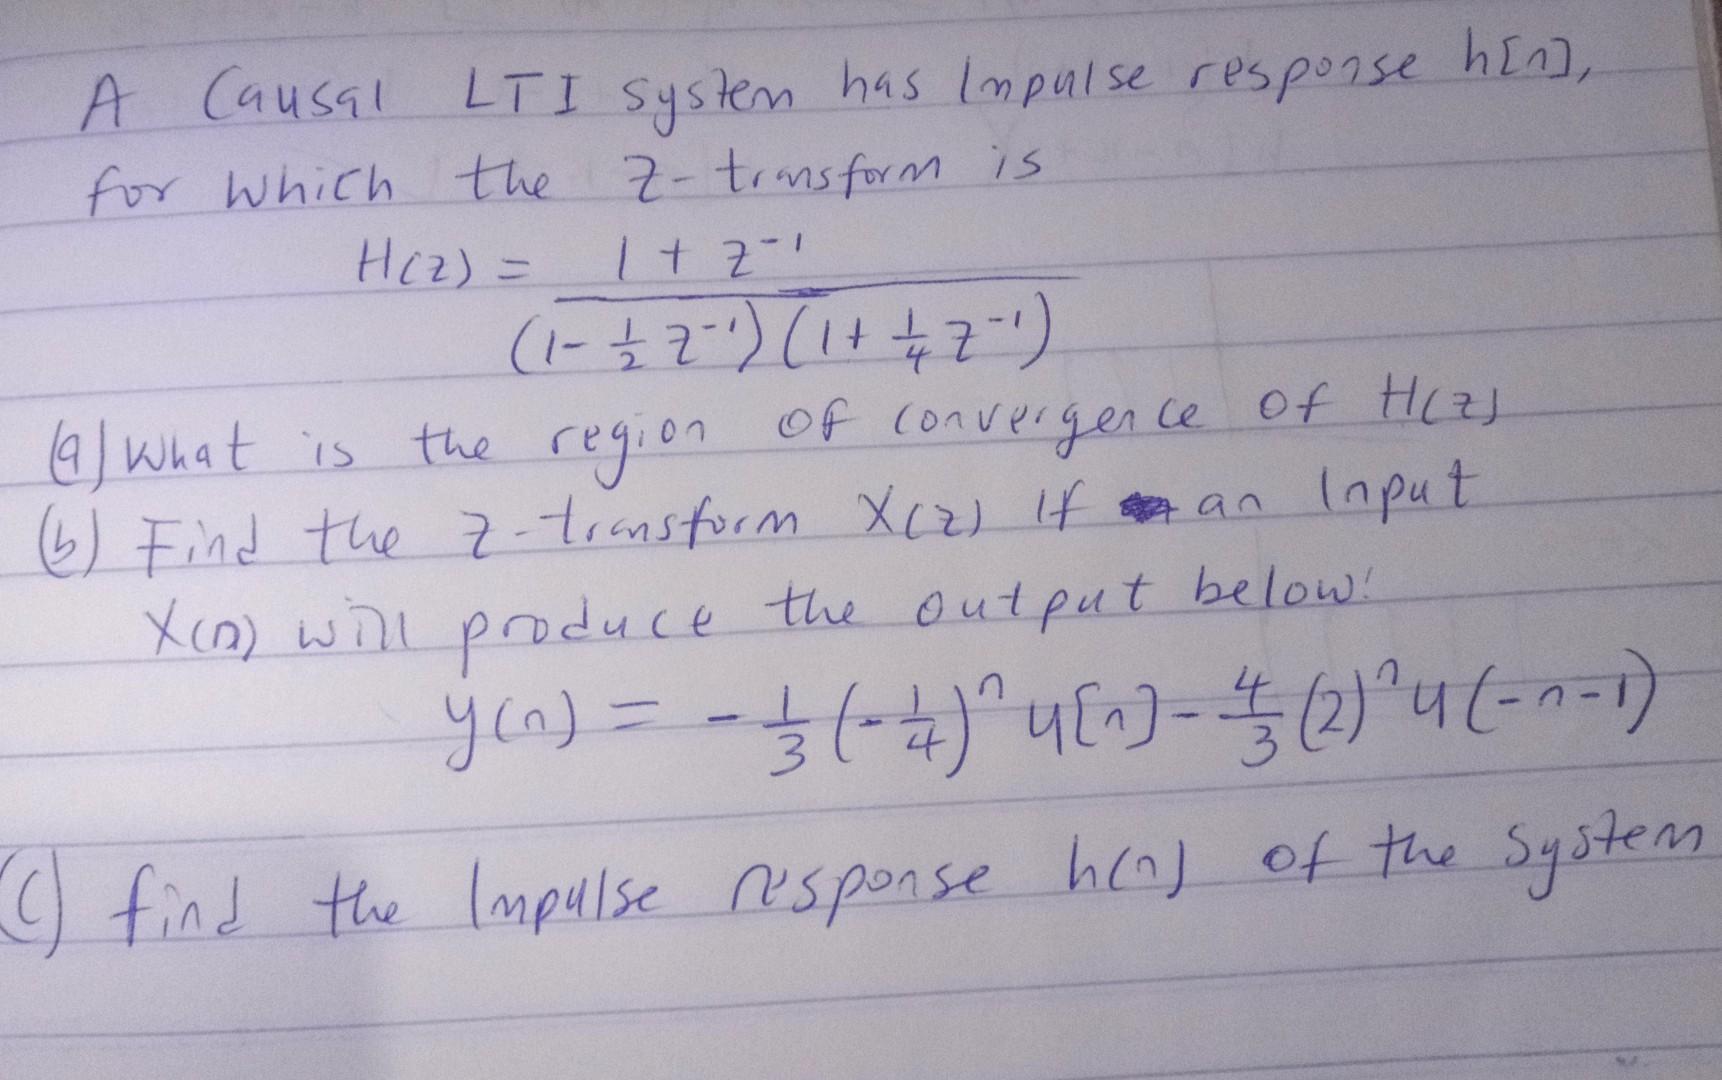 A Causal LTI system has Impulse response h[n],
for which the z-transform is
H(z) = 1 + z⁻¹
(1 - 1/2 z⁻¹)(1 + 1/4 z⁻¹)
(a) What is the region of convergence of H(z)
(b) Find the z-transform X(z) if an Input
X(n) will produce the output below:
y(n) = -1/3 (-1/4)ⁿ u[n] - 4/3 (2)ⁿ u(-n-1)
(C) find the Impulse response h(n) of the system